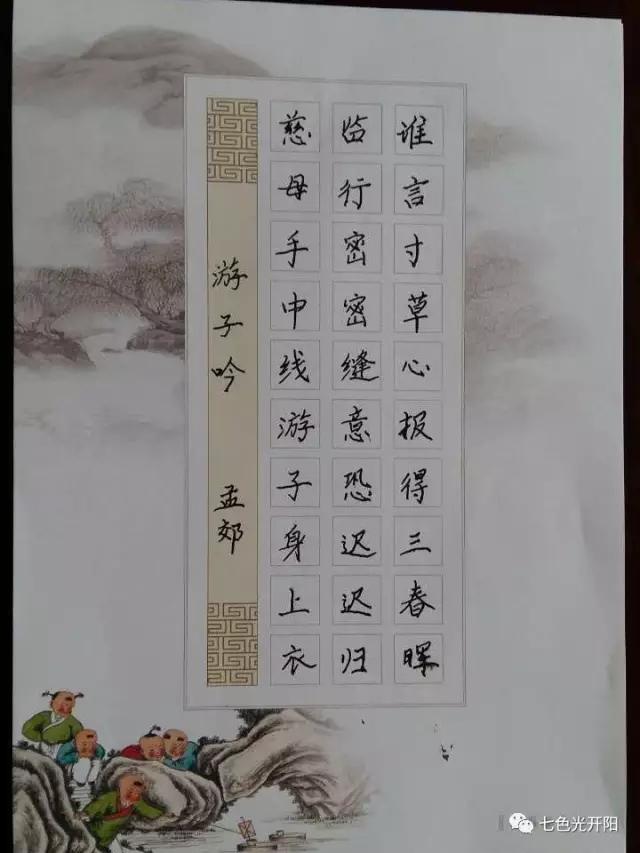 游子吟 孟郊
慈母手中线游子身上衣
临行密密缝意恐迟迟归
谁言寸草心报得三春晖
七色光开阳